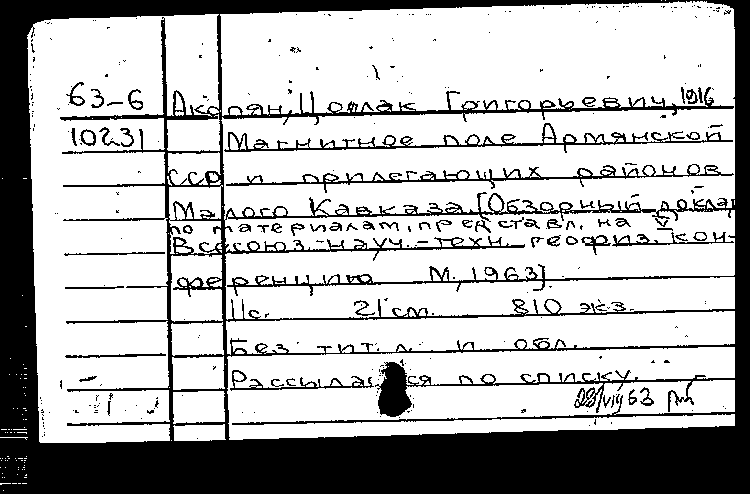 63-6 Акопян, Цолак Григорьевич, 1916
10231 Магнитное поле Армянской
ССР и прилегающих районов
Малого Кавказа. [Обзорный доклад
по материалам, представл. на V
Всесоюз. науч.-техн. геофиз. кон-
ференцию М., 1963]
11с. 21 см. 810 экз.
Без тит. л. и обл.
Рассылается по списку.
63